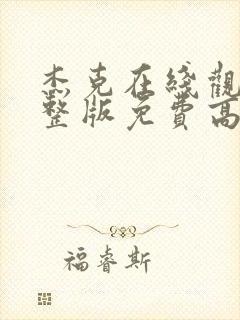 杰克在綫觀
整版免費高
福睿斯